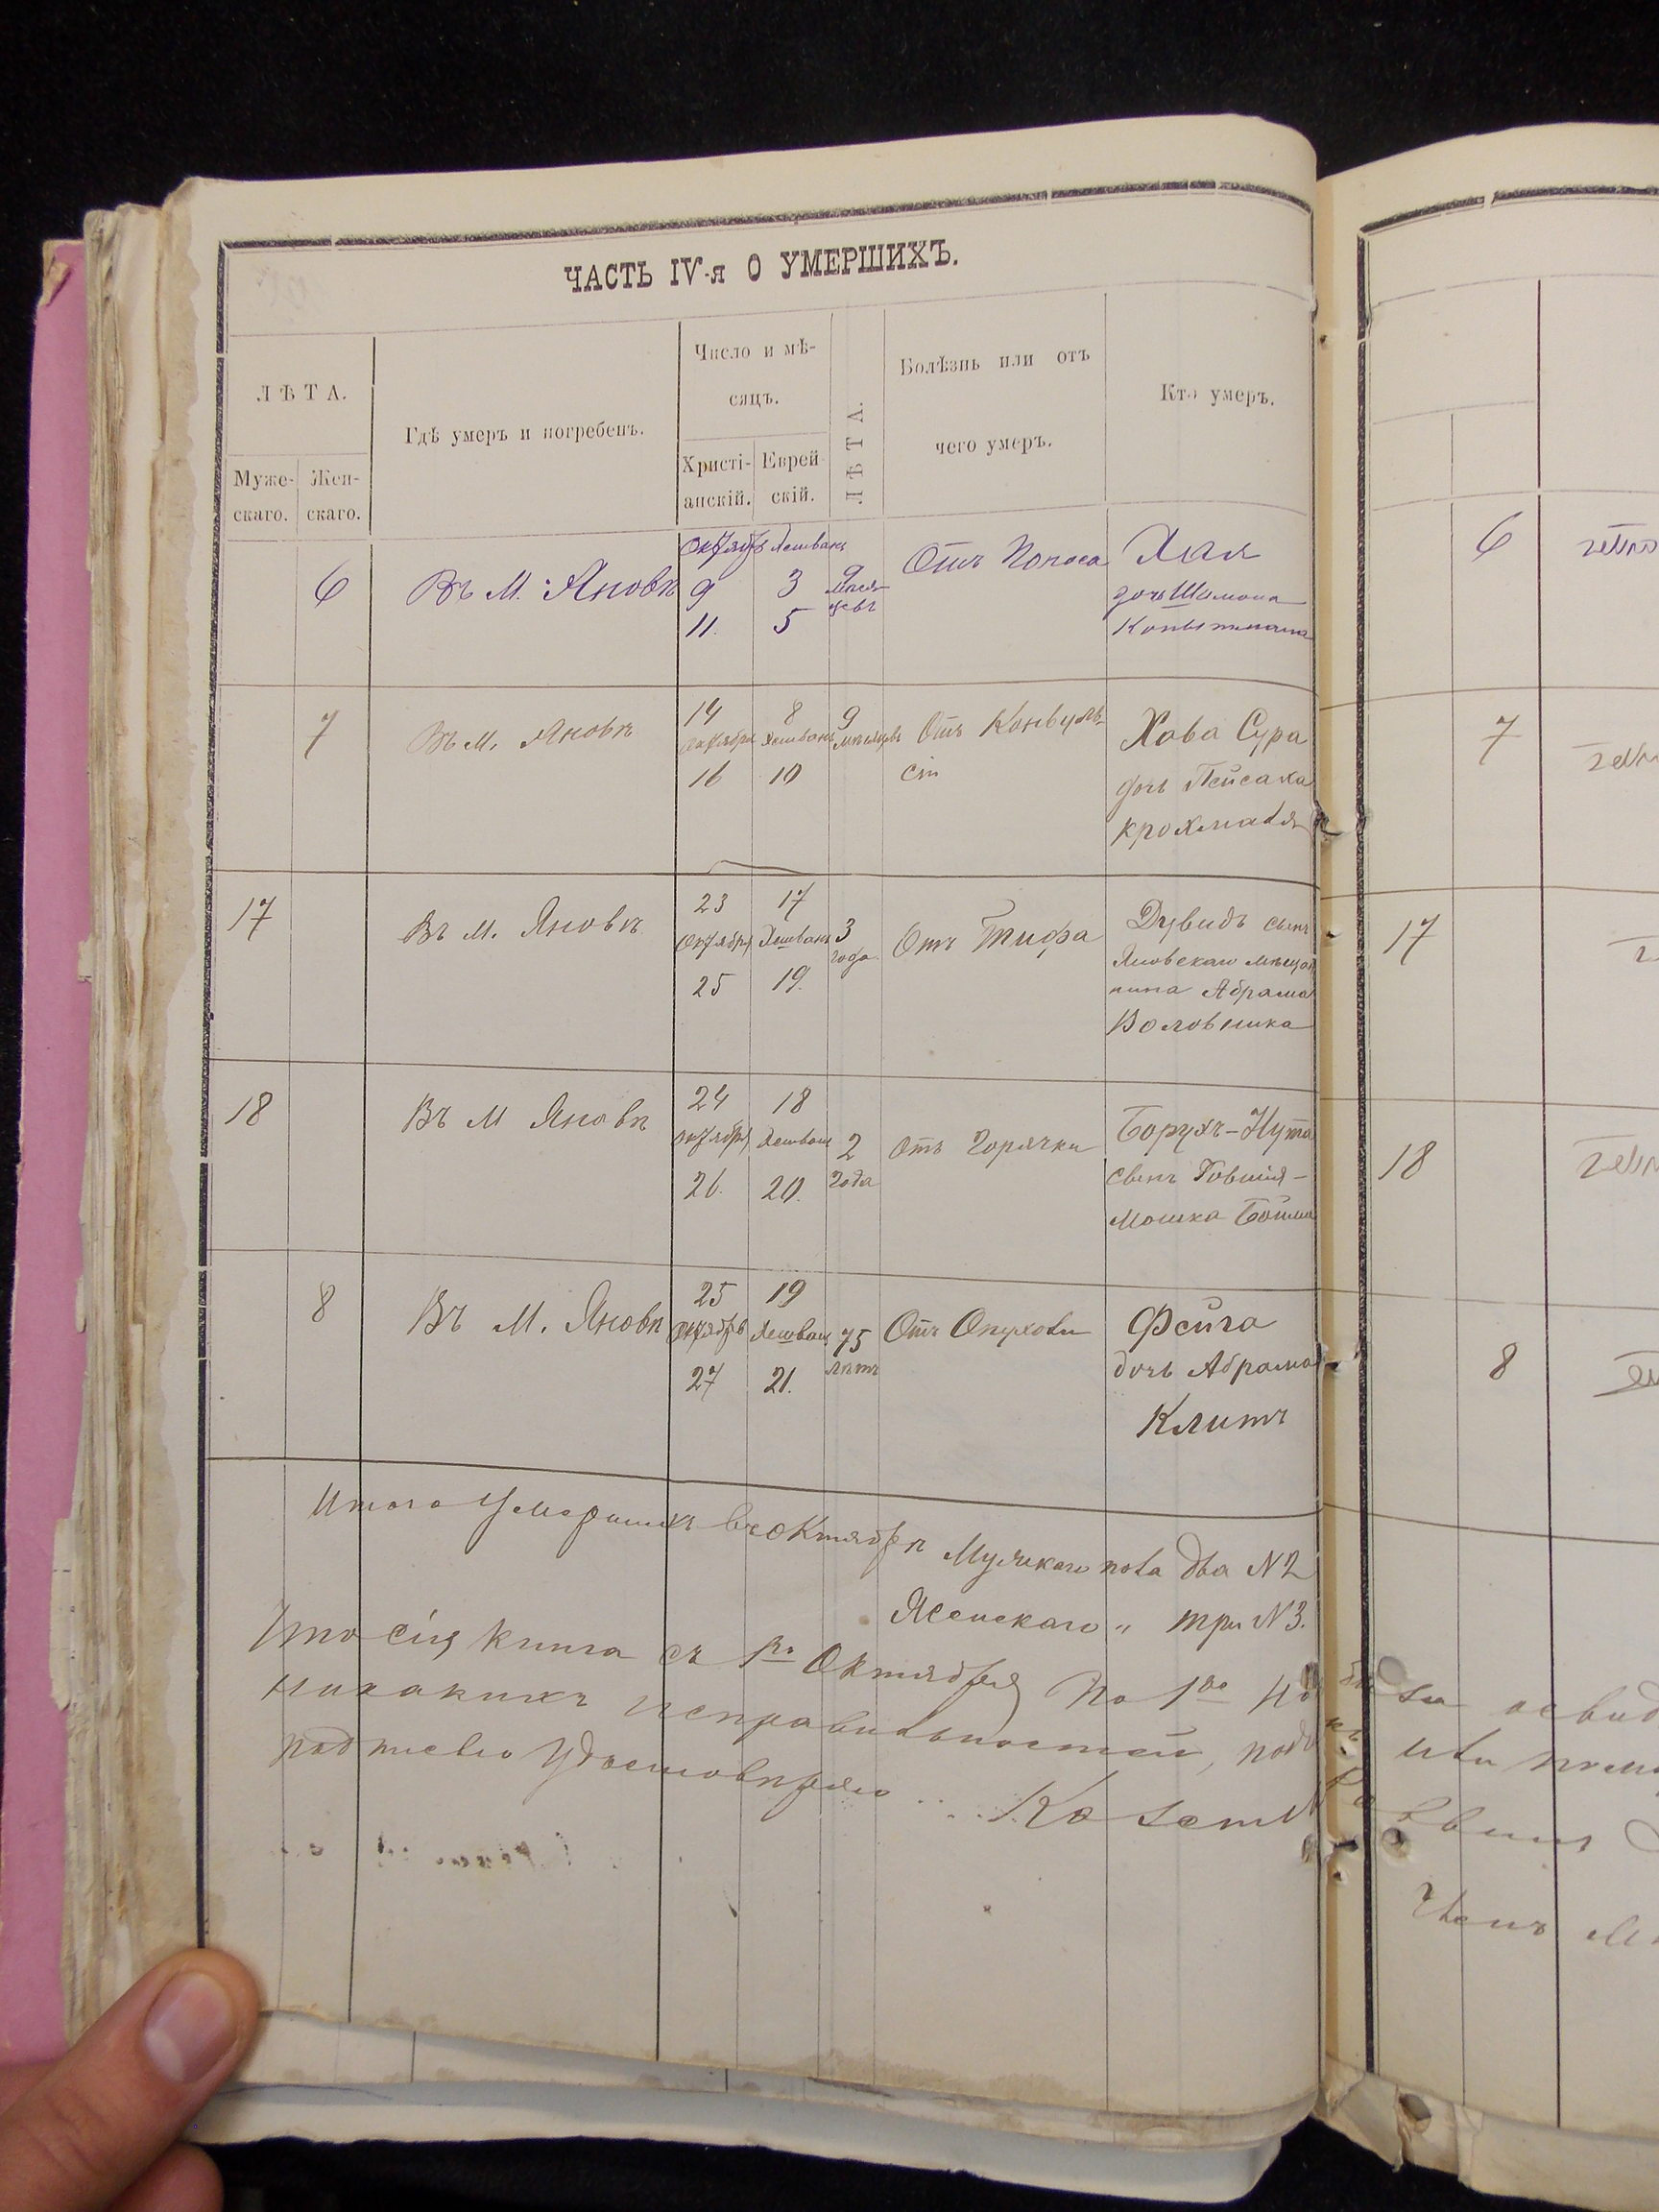 ЧАСТЬ IV-я О УМЕРШИХЪ.
ЛѢТА.
Муже-
скаго.
Жен-
скаго.
Гдѣ умеръ и погребенъ.
Число и мѣ-
сяцъ.
Христі-
анскій.
Еврей-
скій.
ЛѢТА.
Болѣзнь или отъ
чего умеръ.
Кто умеръ.
6
Въ М. Яновѣ
Октября
9
11.
Хешванъ
3
5
9
меся-
цевъ
Отъ Поноса
Хая
дочь Шимона
6
7
Въ М. Яновѣ
14
октября
16
8
Хешванъ
10
9
месяцевъ
Отъ Конвуль-
сіи
Хава Сура
дочь Пейсаха
Крохмаля
7
17
Въ М. Яновѣ
23
октября
25
17
Хешванъ
19.
3
года
Отъ Тифа
Дувидъ сынъ
Яновскаго мѣщан
нина Абрама
Воловника
17
18
Въ М Яновѣ
24
октября
26.
18
Хешван
20.
2
года
отъ Горячки
Борухъ-Нута
сынъ Говшія-
Мошка
18
8
Въ М. Яновѣ
25
октября
27
19
Хешван
21.
75
лѣтъ
Отъ Опухоли
Фейга
дочь Абрама
Клитъ
8
Итого Умершихъ въ Октябрѣ Мужскаго пола два N 2
Женскаго " три N 3.
Что сія книга съ 1го Октября По 1ое Но
никакихъ неправильностей,
подписью Удостовѣряю